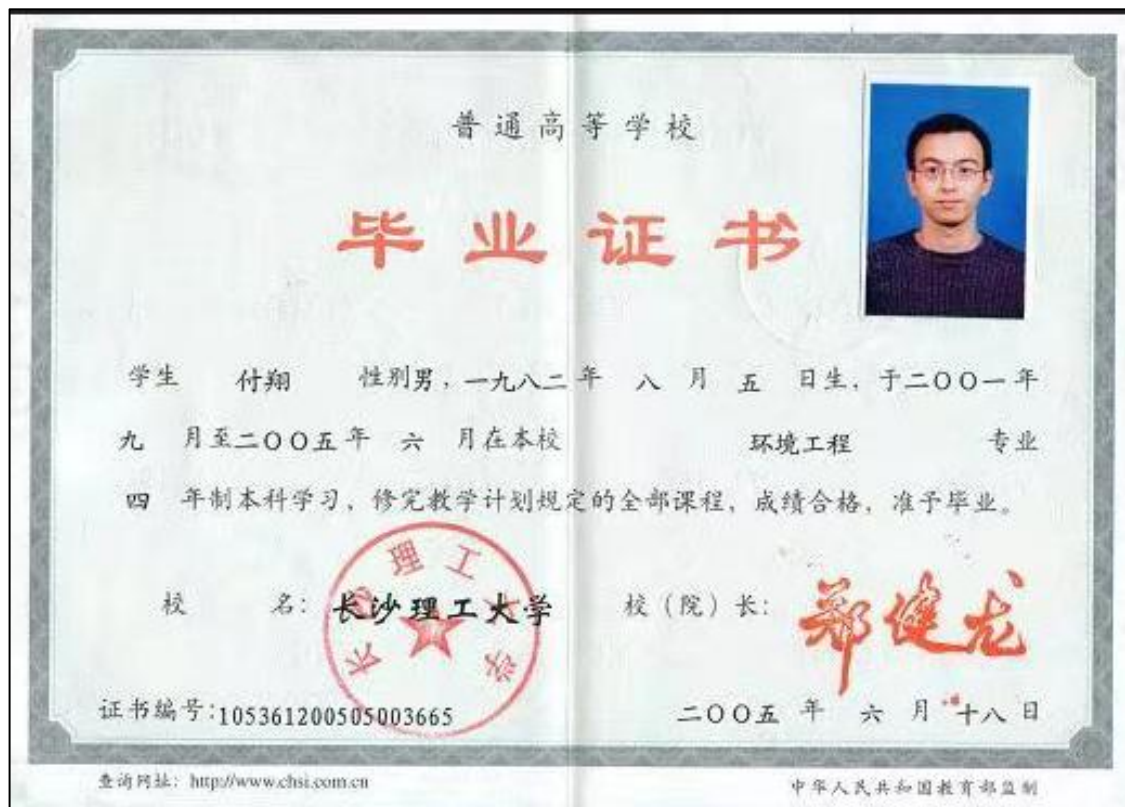 普通高等学校
毕业证书
学生 付翔 性别男，一九八二年 八 月 五 日生，于二〇〇一年
九 月至二〇〇五年 六 月在本校 环境工程 专业
四 年制本科学习，修完教学计划规定的全部课程，成绩合格，准予毕业。
校 名：长沙理工大学 校（院）长：郑健龙
长沙理工大学
证书编号：105361200505003665 二〇〇五 年 六 月 十八 日
查询网址：http://www.chsi.com.cn 中华人民共和国教育部监制